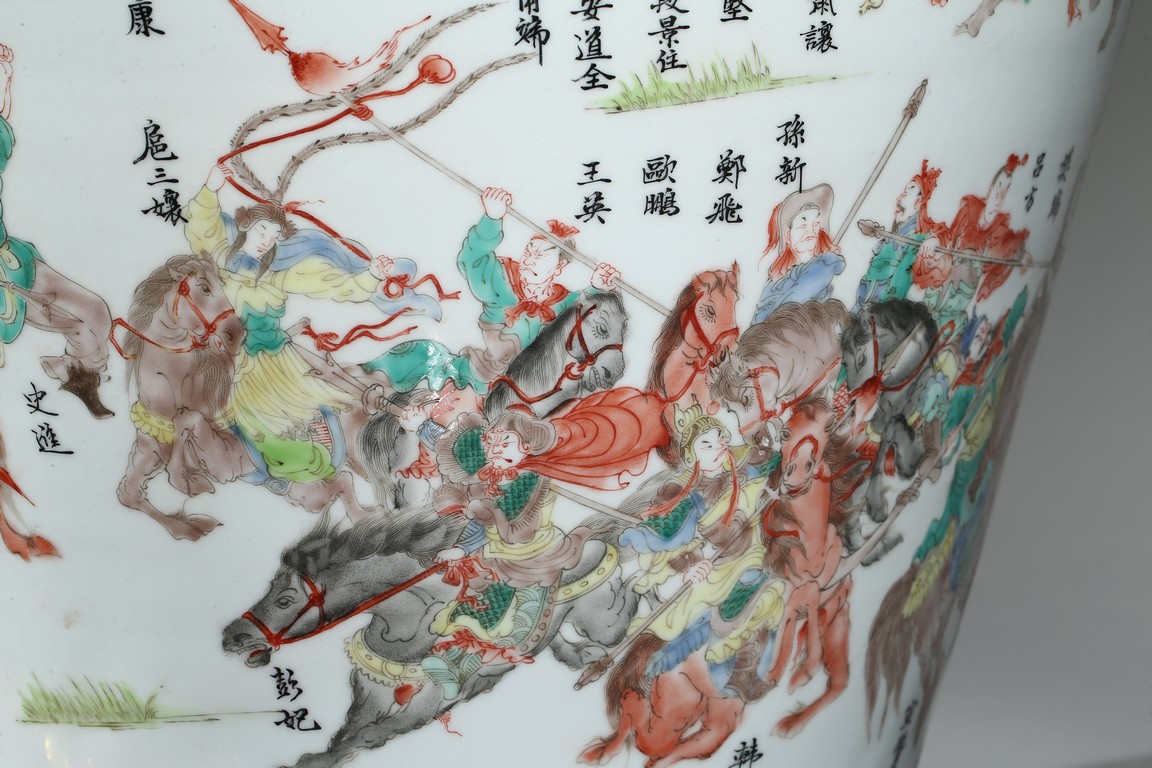 康
安道全
段景住
堅
讓
扈三孃
王英
歐鵬
鄭飛
孫新
呂方
史進
彭妃
韩